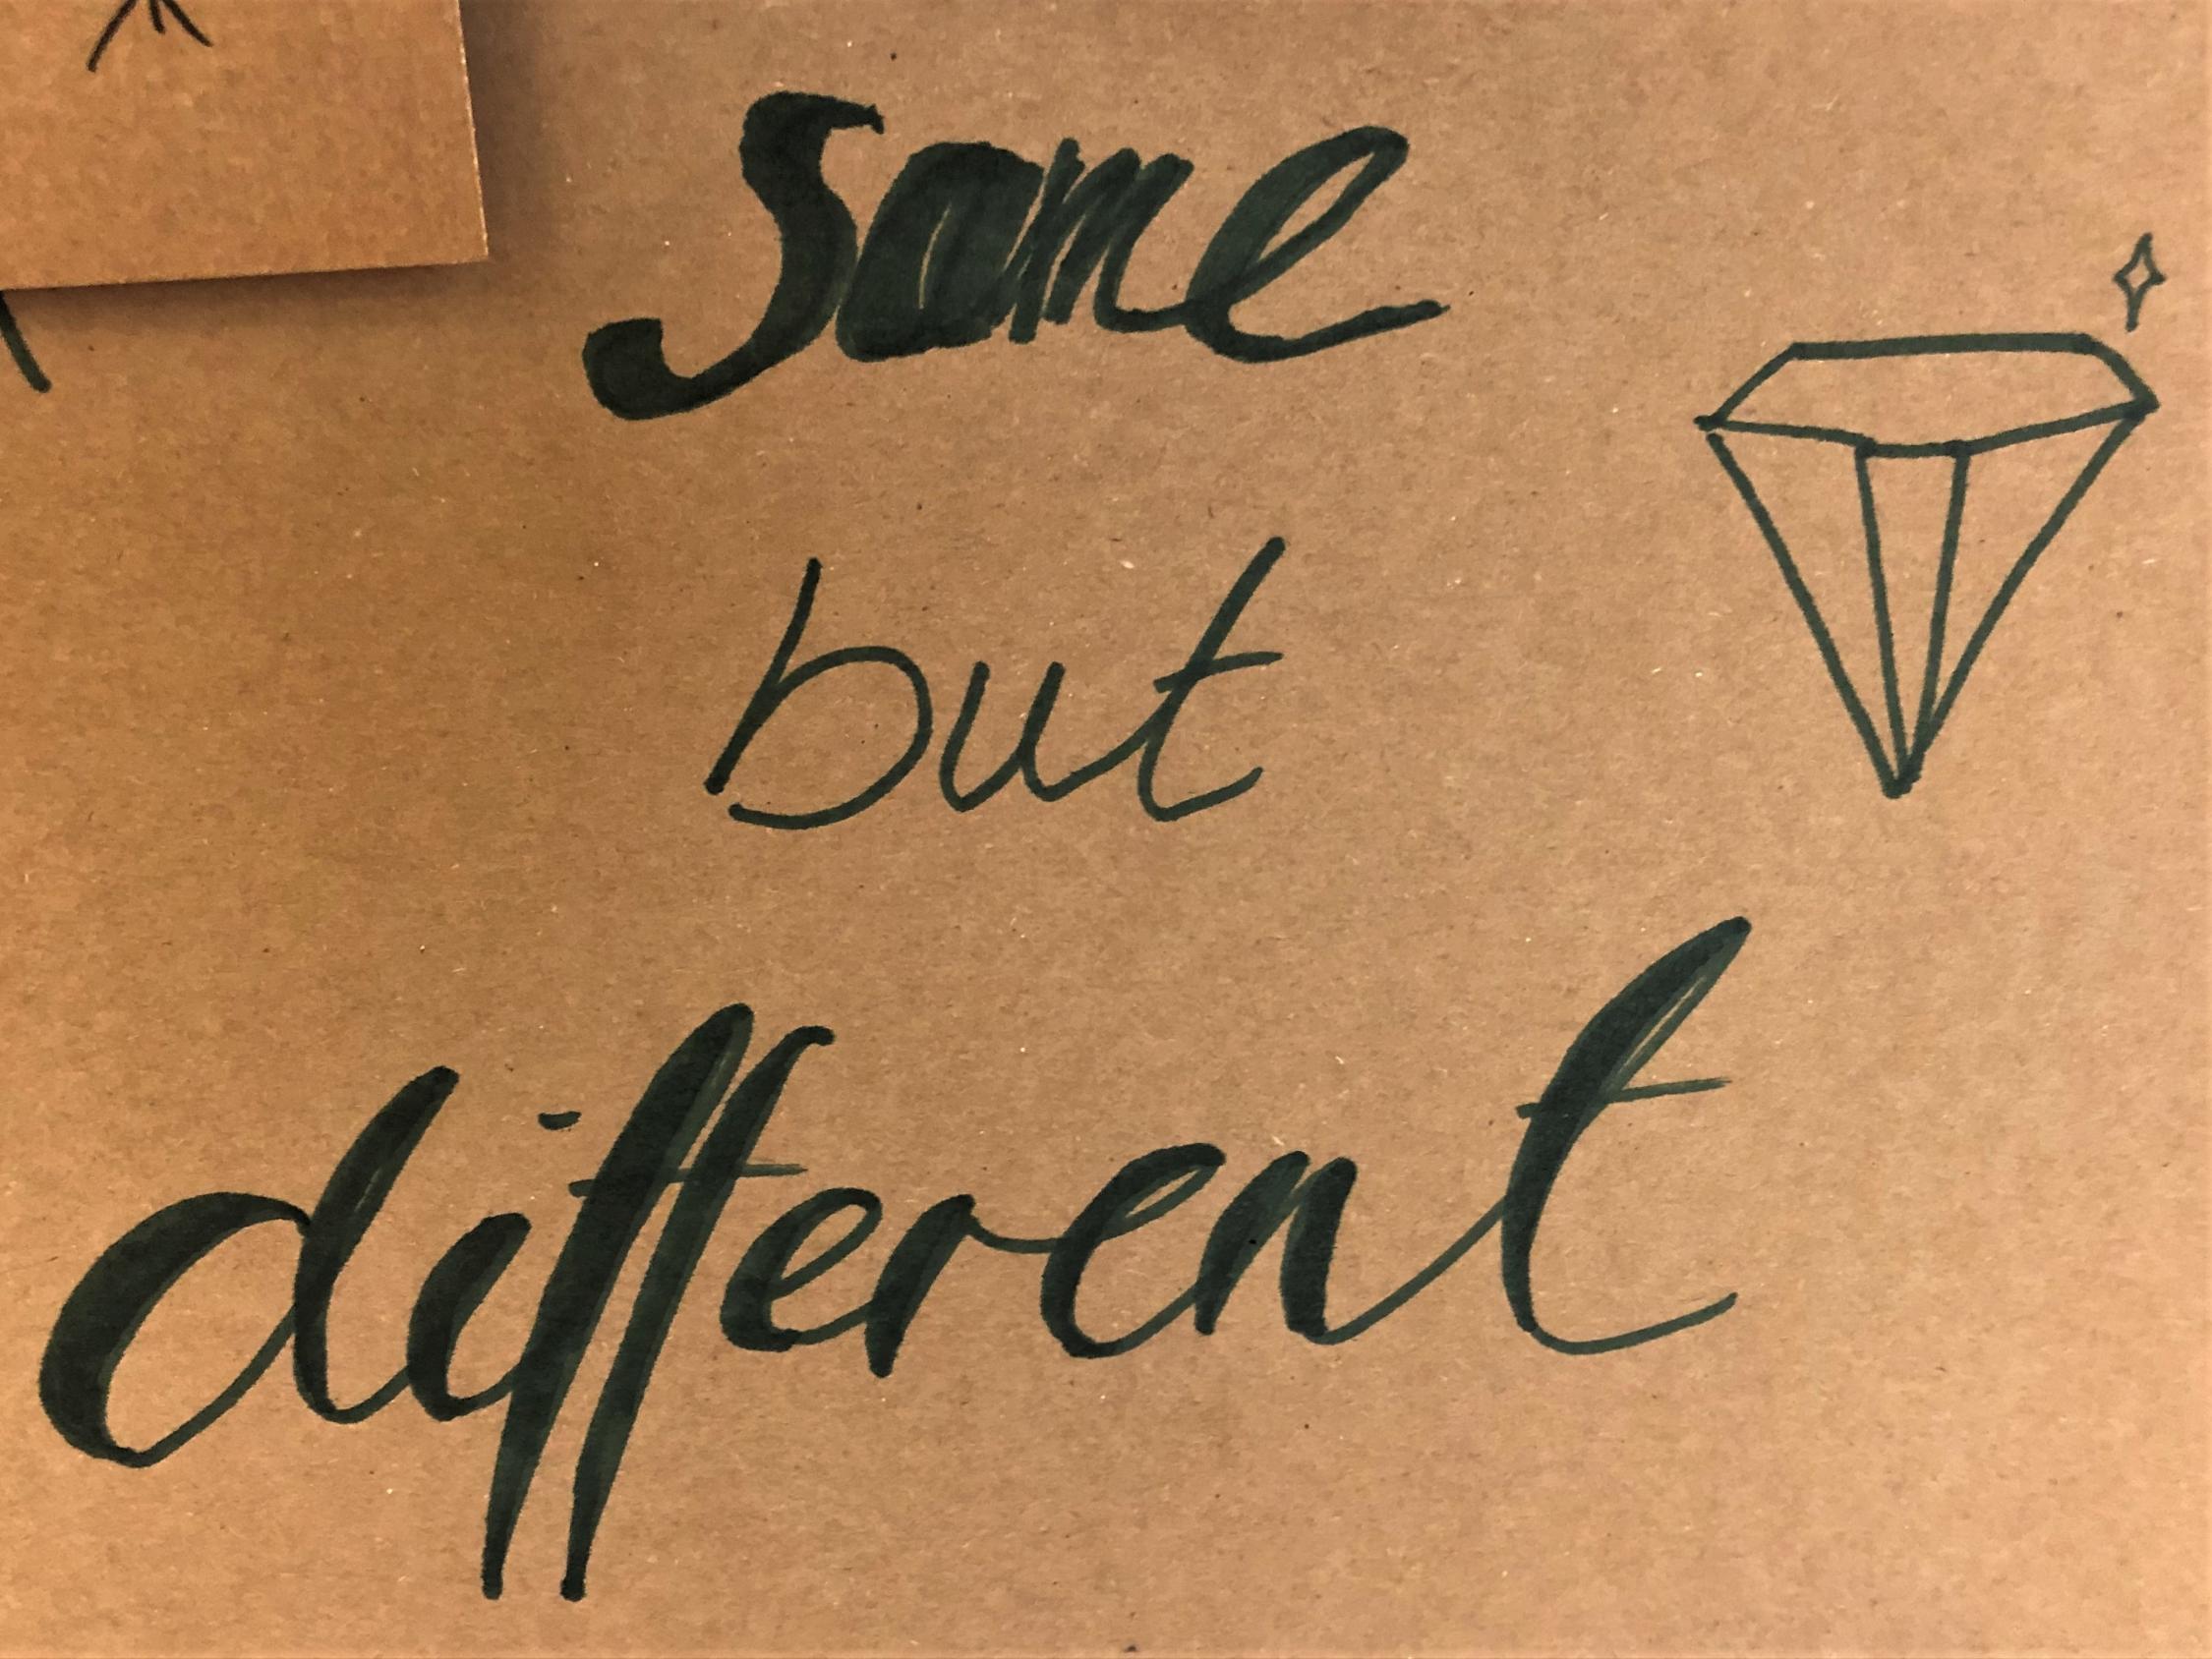 Same
but
different